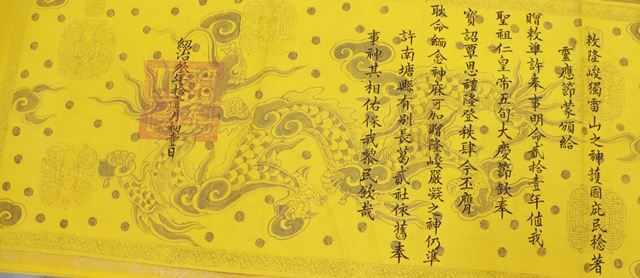 敕隆峻獨雷山之神護國庇民稔著
靈應節蒙頒給
贈敕準許奉事明命貳拾壹年值我
聖祖仁皇帝五旬大慶節欽奉
寶詔覃恩禮隆登秩肆今丕膺
耿命緬念神庥可加贈隆峻嚴凝之神仍準
許南塘縣有別長葛貳社依舊奉
事神其相佑保我黎民欽哉
紹治叁年拾月初日